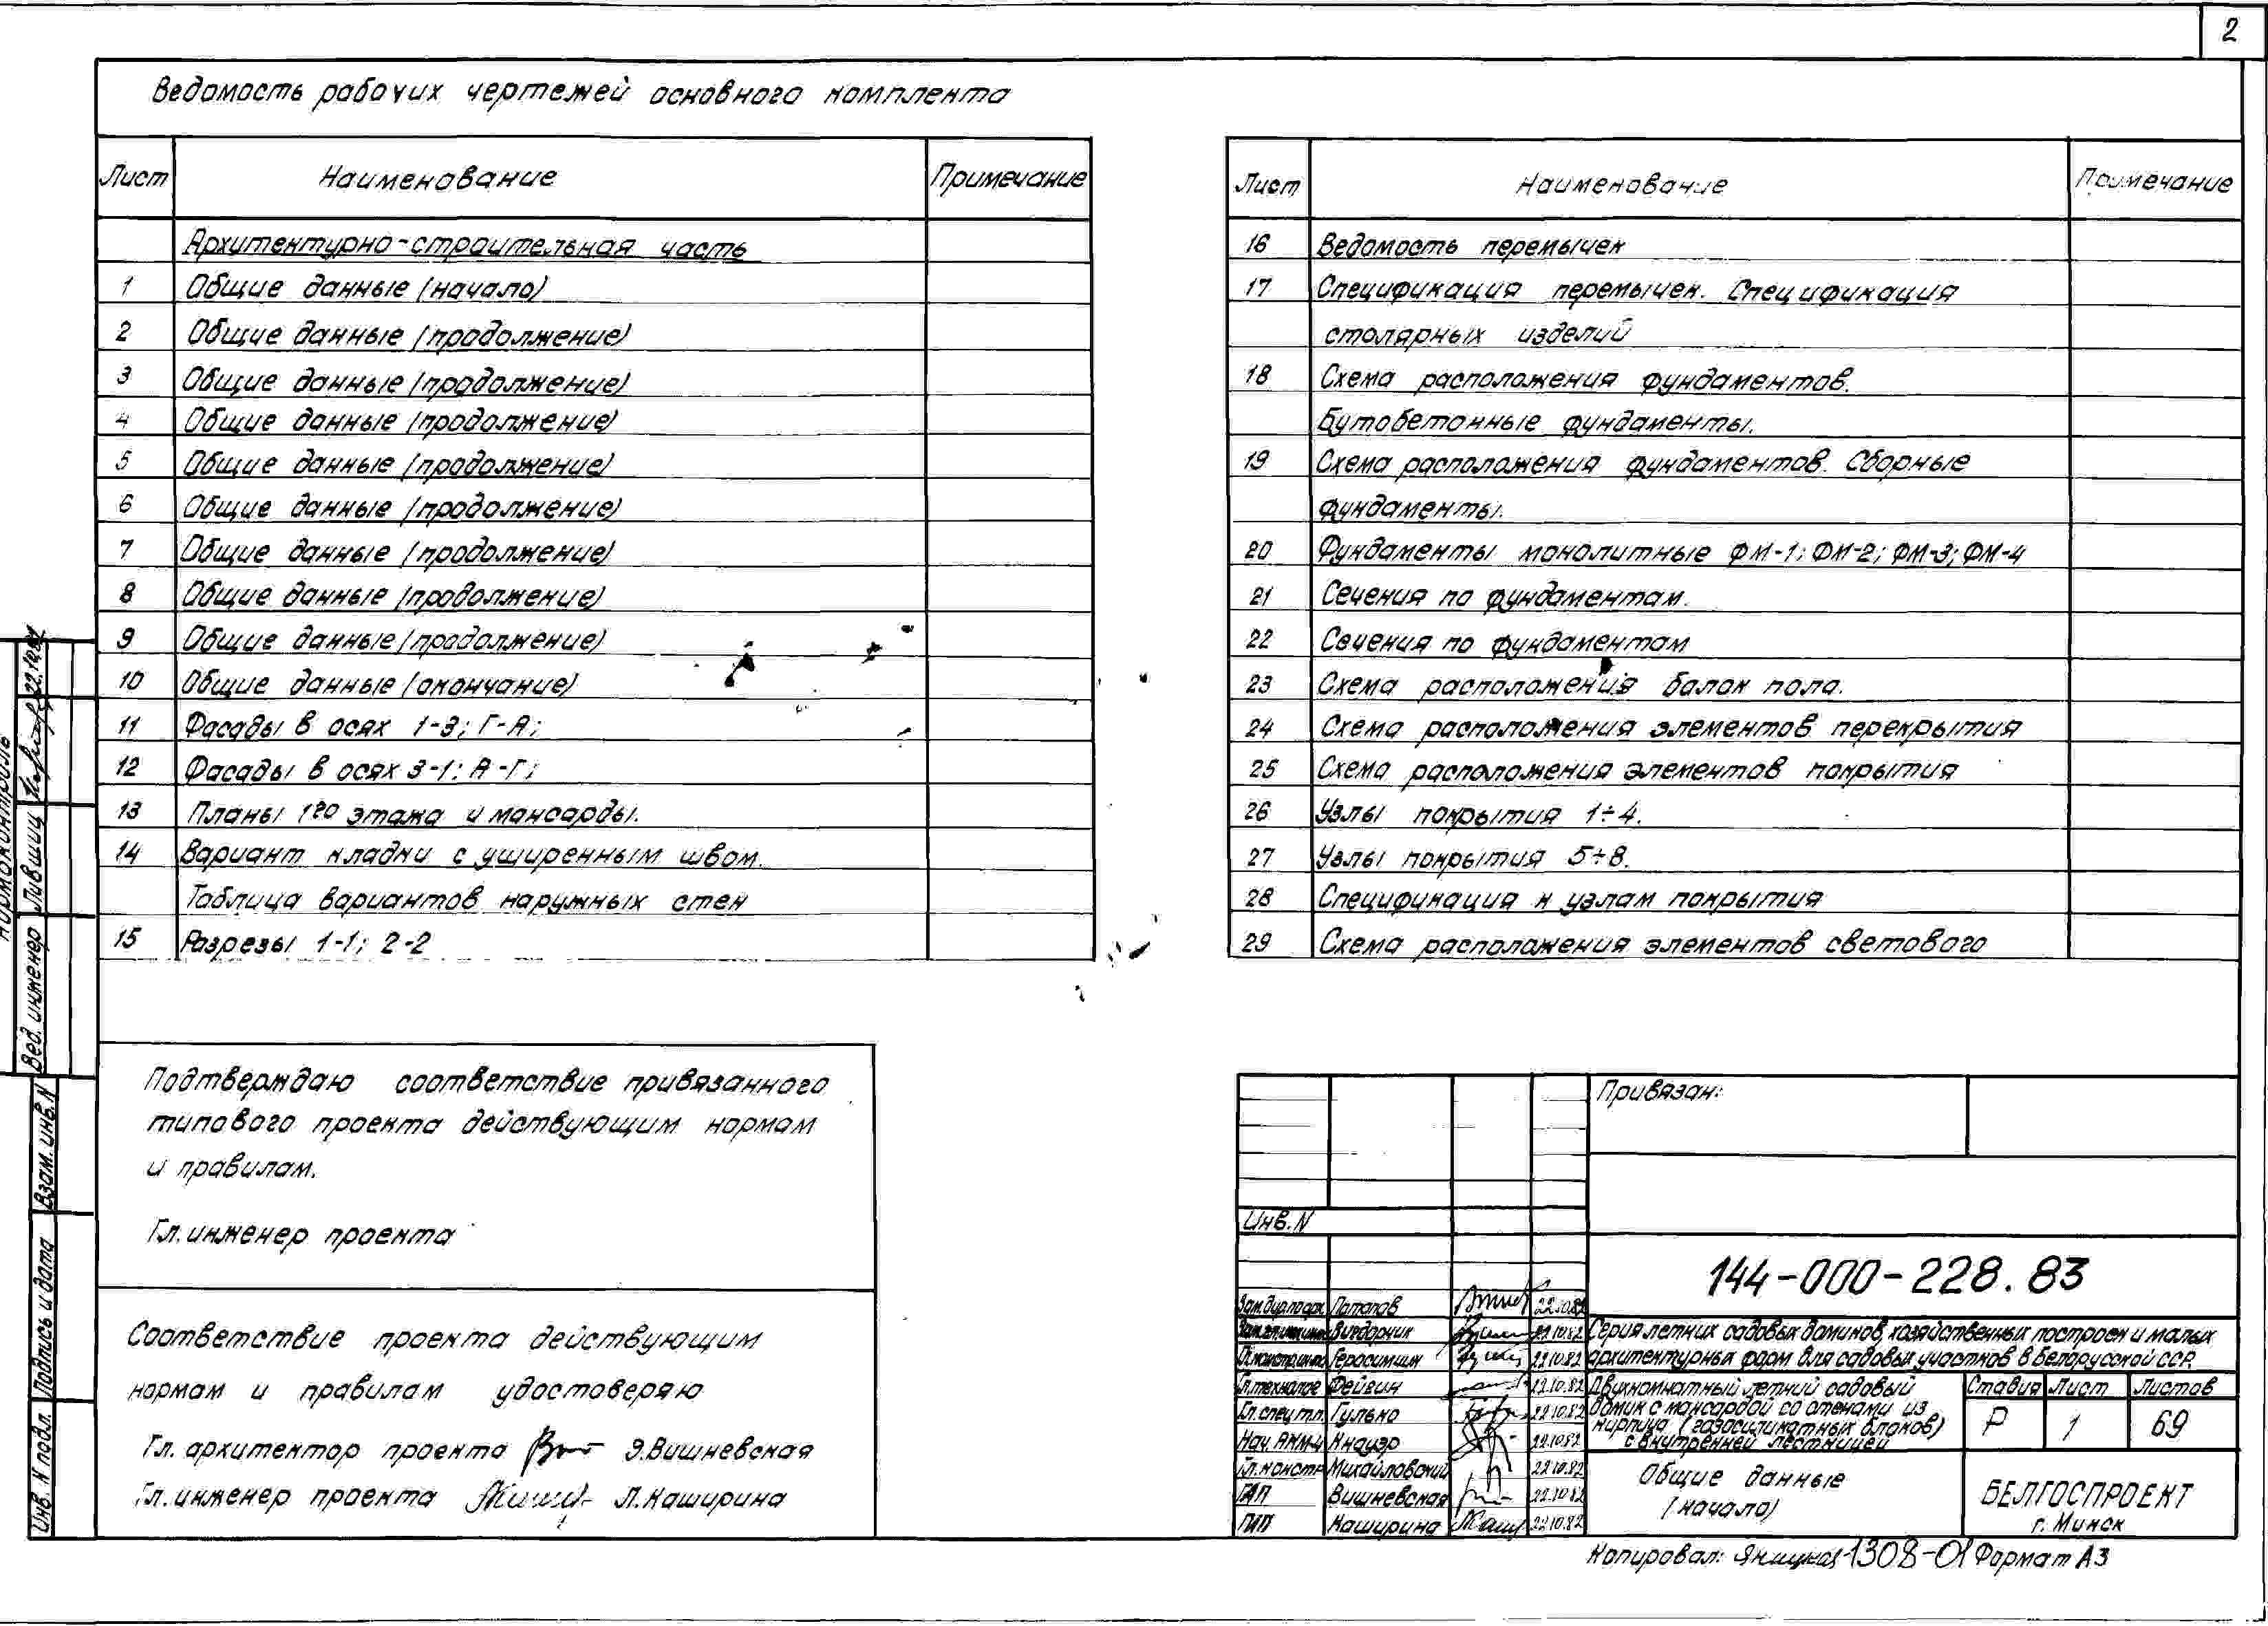 2
Ведомость рабочих чертежей основного комплекта
Лист Наименование Примечание
Архитектурно-строительная часть
1 Общие данные (начало)
2 Общие данные (продолжение)
3 Общие данные (продолжение)
4 Общие данные (продолжение)
5 Общие данные (продолжение)
6 Общие данные (продолжение)
7 Общие данные (продолжение)
8 Общие данные (продолжение)
9 Общие данные (продолжение)
10 Общие данные (окончание)
11 Фасады в осях 1-3; Г-А;
12 Фасады в осях 3-1; А-Г;
13 Планы 1го этажа и мансарды.
14 Вариант кладки с уширенным швом.
Таблица вариантов наружных стен
15 Разрезы 1-1; 2-2
Лист Наименование Примечание
16 Ведомость перемычек
17 Спецификация перемычек. Спецификация
столярных изделий
18 Схема расположения фундаментов.
Бутобетонные фундаменты.
19 Схема расположения фундаментов. Сборные
фундаменты.
20 Фундаменты монолитные ФМ-1; ФМ-2; ФМ-3; ФМ-4
21 Сечения по фундаментам.
22 Сечения по фундаментам
23 Схема расположения балок пола.
24 Схема расположения элементов перекрытия
25 Схема расположения элементов покрытия
26 Узлы покрытия 1÷4.
27 Узлы покрытия 5÷8.
28 Спецификация к узлам покрытия
29 Схема расположения элементов светового
Подтверждаю соответствие привязанного
типового проекта действующим нормам
и правилам.
Гл. инженер проекта
Соответствие проекта действующим
нормам и правилам удостоверяю
Гл. архитектор проекта Э.Вишневская
Гл. инженер проекта Л.Каширина
Нормоконтроль
Вед. инженер Лившиц
Инв. N подл. Подпись и дата Взам. инв. N
Привязан:
Инв. N
144-000-228.83
Зам.дир.по арх. Потапов 22.10.82
Вигдорчик 22.10.82
Герасимчик 22.10.82
Гл.технолог Фейгин 22.10.82
Гл.спец.т.п. Гулько 22.10.82
Нач.АКМ-4 Кнауэр 22.10.82
Гл.констр Михайловский 22.10.82
ГАП Вишневская 22.10.82
ГИП Каширина 22.10.82
Серия летних садовых домиков, хозяйственных построек и малых
архитектурных форм для садовых участков в Белорусской ССР.
Двухкомнатный летний садовый
домик с мансардой со стенами из
кирпича (газосиликатных блоков)
с внутренней лестницей
Стадия Лист Листов
Р 1 69
Общие данные
(начало)
БЕЛГОСПРОЕКТ
г. Минск
Копировал: 1308-01 Формат А3